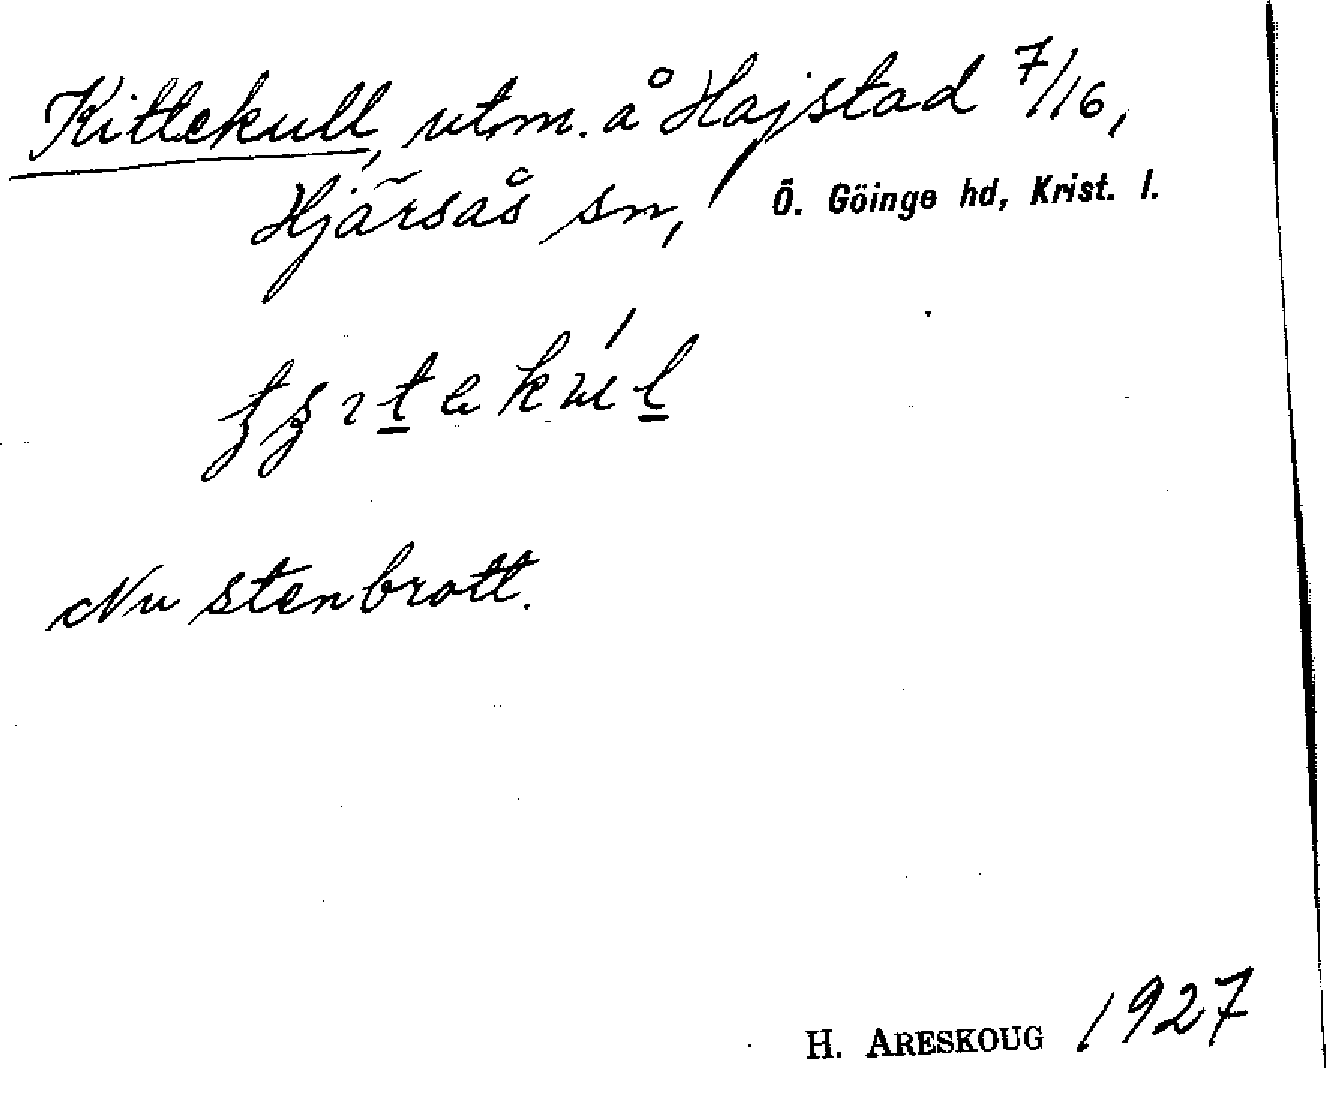 Kittekull, utm. å Hajstad 7/16,
Hjärsås sn, Ö. Göinge hd, Krist. l.
Nu stenbrott.
H. ARESKOUG 1927